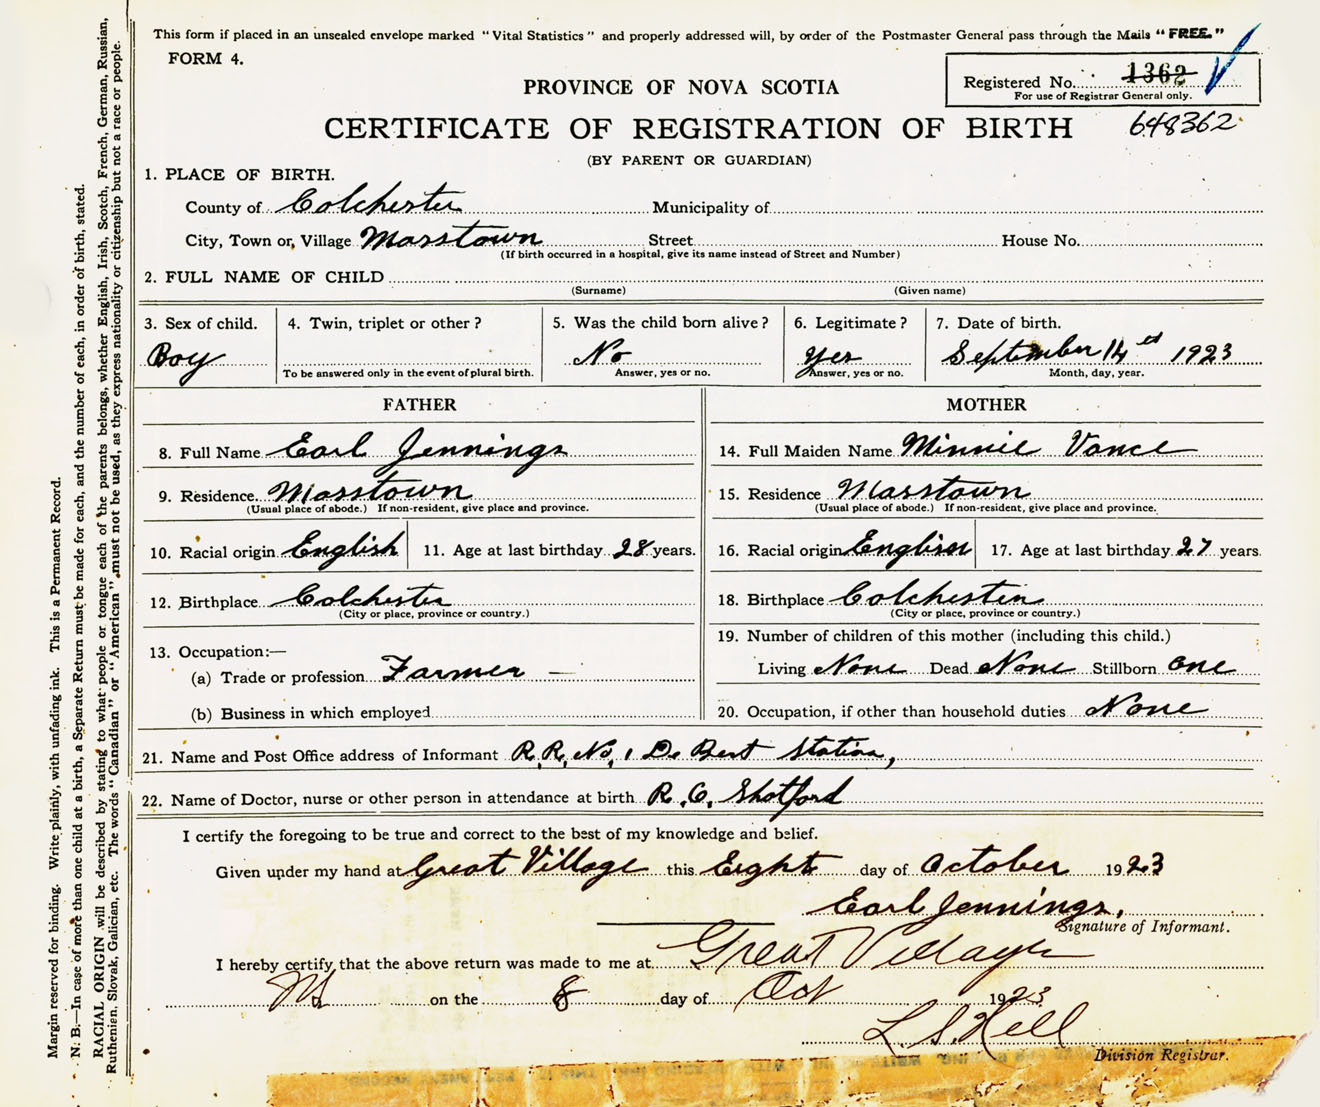 This form if placed in an unsealed envelope marked "Vital Statistics" and properly addressed will, by order of the Postmaster General pass through the Mails "FREE."
FORM 4.
Registered No. 1362
For use of Registrar General only.
PROVINCE OF NOVA SCOTIA
CERTIFICATE OF REGISTRATION OF BIRTH 648362
(BY PARENT OR GUARDIAN)
1. PLACE OF BIRTH.
County of Colchester Municipality of
City, Town or, Village Masstown Street House No.
(If birth occurred in a hospital, give its name instead of Street and Number)
2. FULL NAME OF CHILD
(Surname) (Given name)
3. Sex of child. 4. Twin, triplet or other? 5. Was the child born alive? 6. Legitimate? 7. Date of birth.
Boy No Yes September 14 ed 1923
To be answered only in the event of plural birth. Answer, yes or no. Answer, yes or no. Month, day, year.
FATHER MOTHER
8. Full Name Earl Jennings 14. Full Maiden Name Minnie Vance
9. Residence Masstown 15. Residence Masstown
(Usual place of abode.) If non-resident, give place and province. (Usual place of abode.) If non-resident, give place and province.
10. Racial origin English 11. Age at last birthday 28 years. 16. Racial origin English 17. Age at last birthday 27 years.
12. Birthplace Colchester 18. Birthplace Colchester
(City or place, province or country.) (City or place, province or country.)
19. Number of children of this mother (including this child.)
13. Occupation:—
(a) Trade or profession Farmer — Living None Dead None Stillborn one
(b) Business in which employed 20. Occupation, if other than household duties None
21. Name and Post Office address of Informant R.R. No. 1 De Bert Station,
22. Name of Doctor, nurse or other person in attendance at birth R. C. Shatford
I certify the foregoing to be true and correct to the best of my knowledge and belief.
Given under my hand at Great Village this Eight day of October 1923
Earl Jennings,
Signature of Informant.
I hereby certify that the above return was made to me at Great Village
NS on the 8 day of Oct 1923
L. S. Hill
Division Registrar.
Margin reserved for binding. Write plainly, with unfading ink. This is a Permanent Record.
N. B.—In case of more than one child at a birth, a Separate Return must be made for each, and the number of each, in order of birth, stated.
RACIAL ORIGIN will be described by stating to what people or tongue each of the parents belongs, whether English, Irish, Scotch, French, German, Russian,
Ruthenien, Slovak, Galician, etc. The words "Canadian" or "American" must not be used, as they express nationality or citizenship but not a race or people.